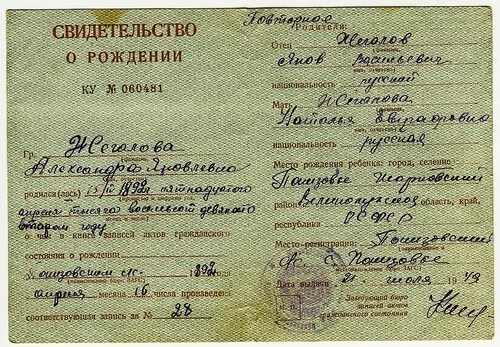 СВИДЕТЕЛЬСТВО
О РОЖДЕНИИ
КУ № 060481
Гр. Жегалова
Александра Яковлевна
родился(лась) 15/IV 1892 пятнадцатого
апреля тысяча восемьсот девяносто
втором году
о чем в книге записей актов гражданского
состояния о рождении
1892 года
апреля месяца 16 числа произведена
соответствующая запись за № 28
Повторное
Родители:
Отец Жегалов
Яков Васильевич
национальность русский
Мать Жегалова
Наталья Евграфовна
национальность русская
Место рождения ребенка: город, селение
область, край,
республика РСФСР
Место регистрации:
Дата выдачи 21 июля 1949
Заведующий бюро
записей актов
гражданского состояния